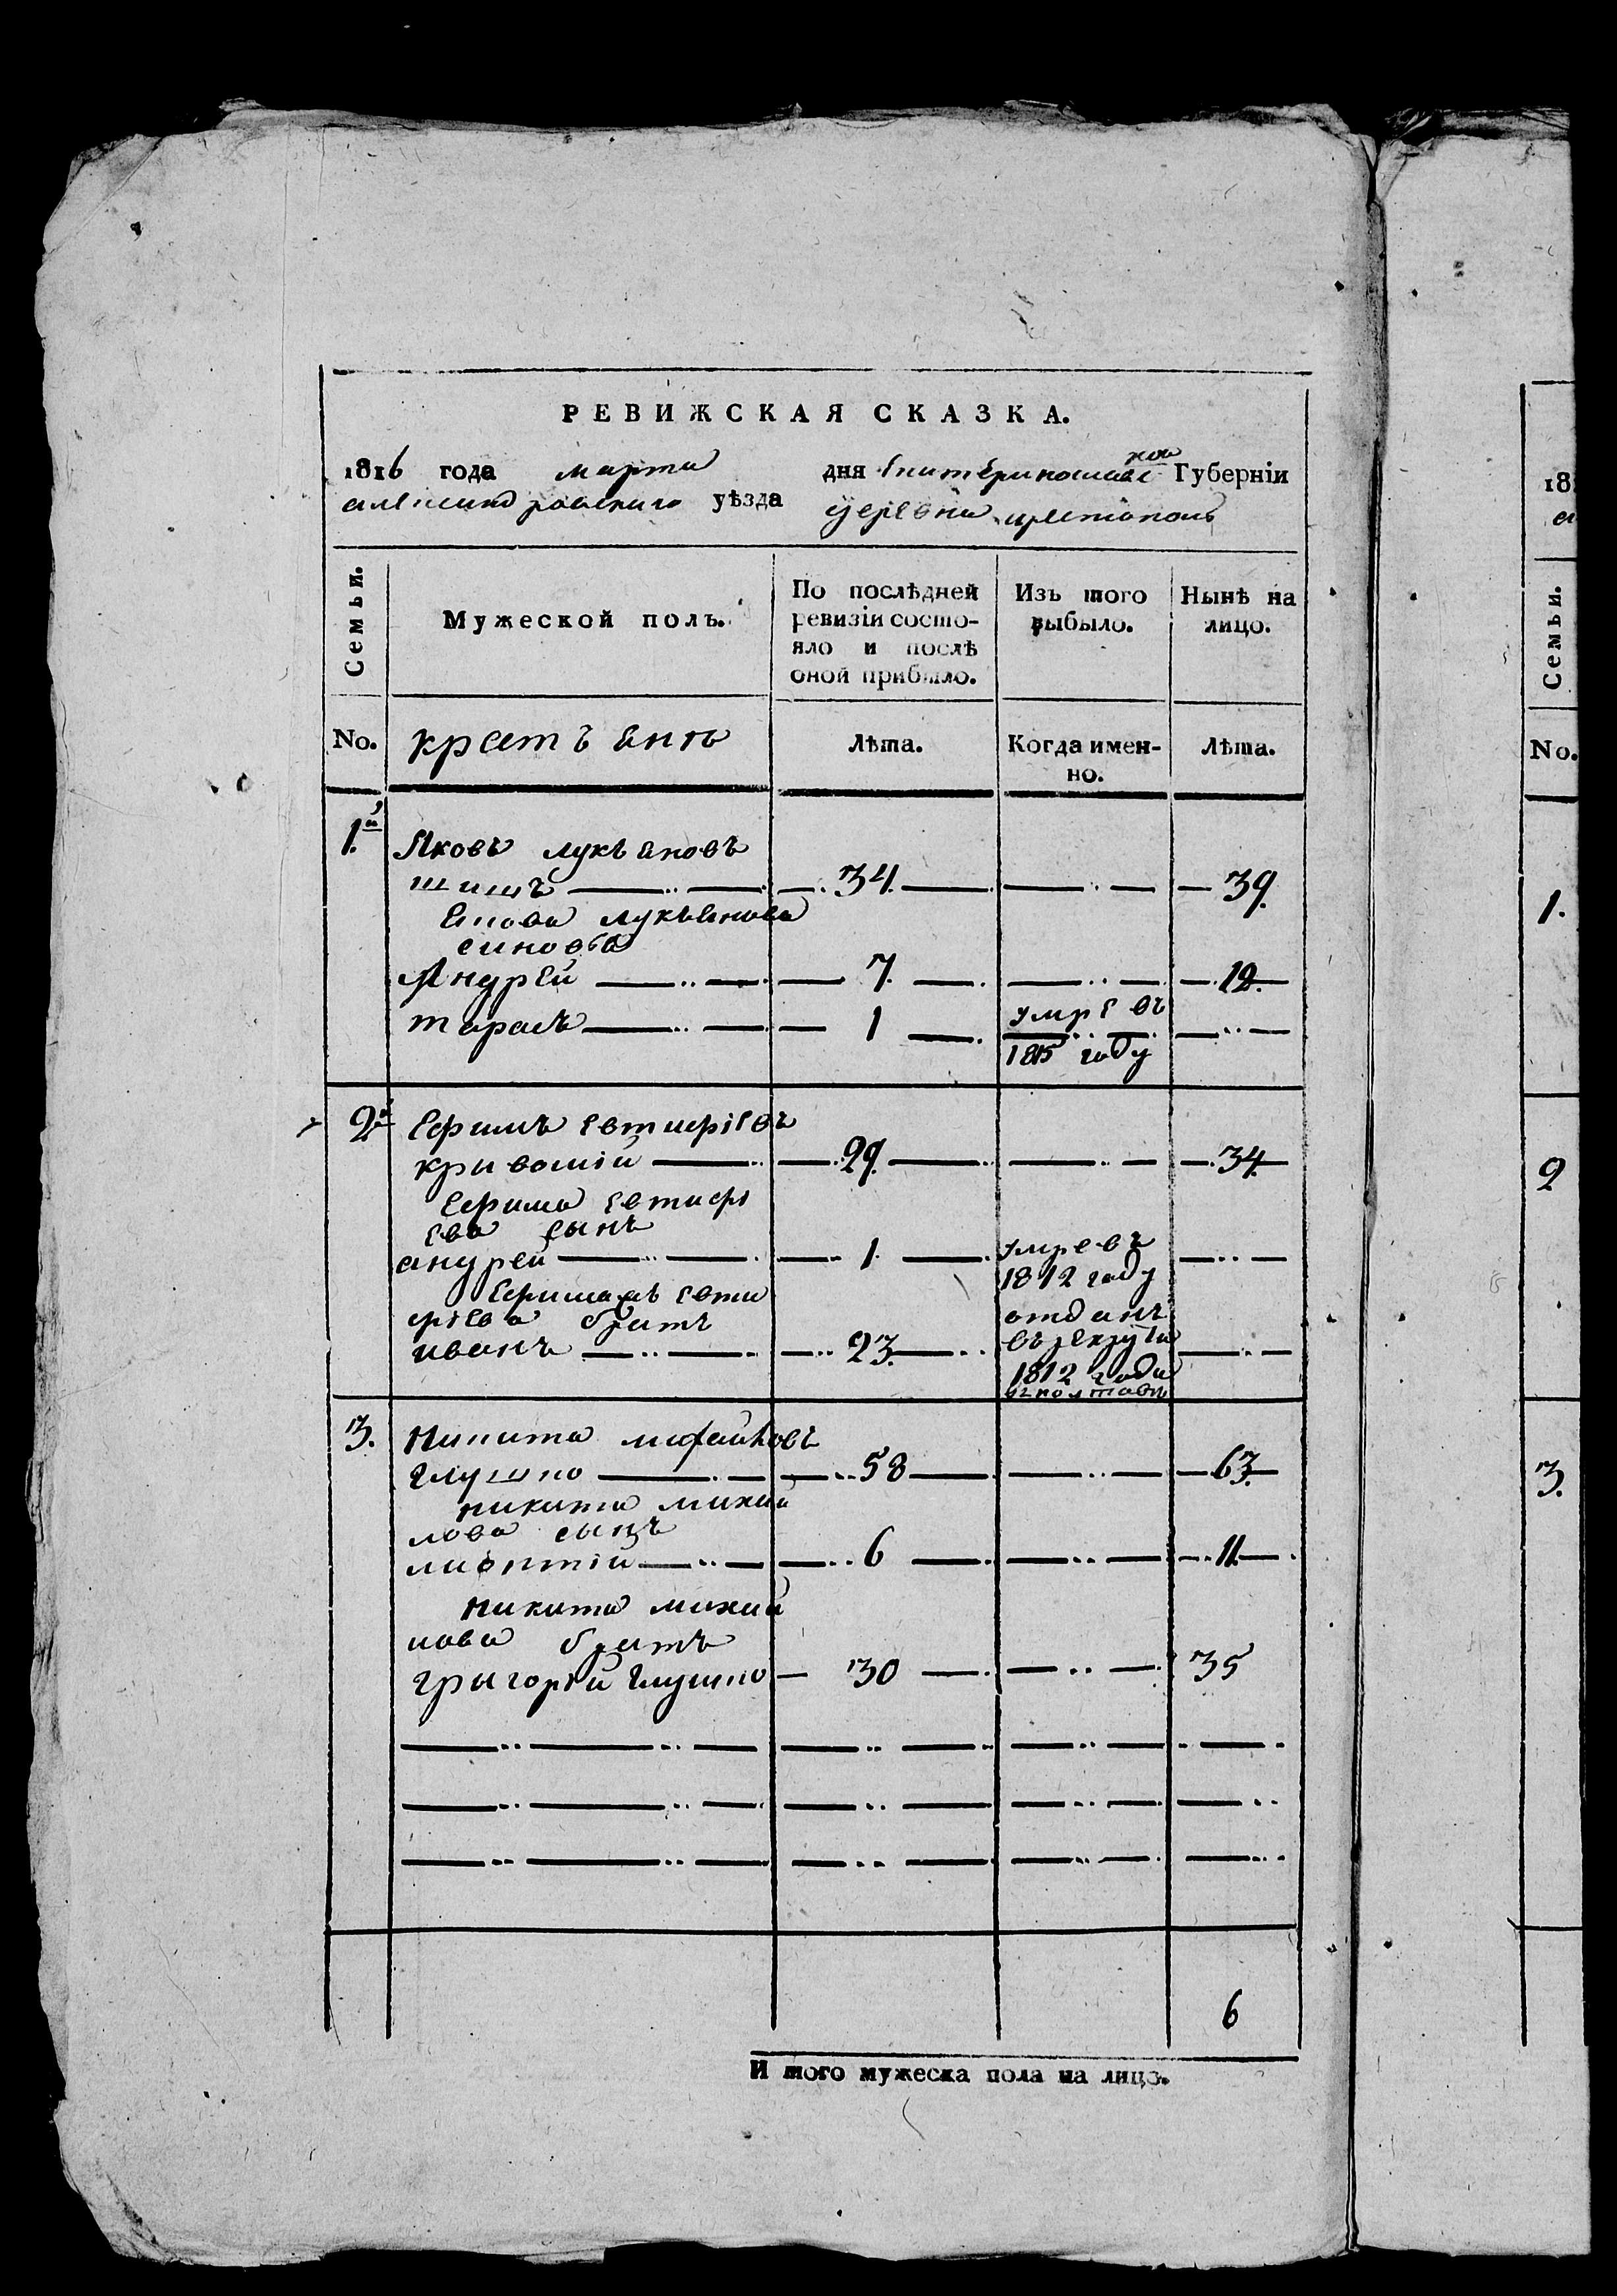 РЕВИЖСКАЯ СКАЗКА.
1816 года марта дня Екатеринославской Губерніи
александровского уѣзда деревни
Семьи.
Мужеской полъ.
По послѣдней ревизіи состо-
яло и послѣ
оной прибыло.
Изъ того
выбыло.
Нынѣ на
лицо.
No.
крестъяне
Лѣта.
Когда имен-
но.
Лѣта.
1.й
Яковъ лукъяновъ
шишъ 34. 39.
Якова лукъянова
синовья
Андрей 7. 12.
тарасъ 1 умре въ
1815 году
2й
Ефимъ евтифіевъ
кривошій 29. 34.
Ефима евтифі
ева сынъ
андрей 1. умре въ
1812 году
Ефима евти
фіева братъ
иванъ 23. отданъ
въ рекруты
1812 года
3.
Никита михайловъ
глушко 58 63.
никита михай
лова сынъ
6 11.
никита михай
лова братъ
григорій глушко 30 35
6
И того мужеска пола на лицо.
18
Семьи.
No.
1.
2
3.